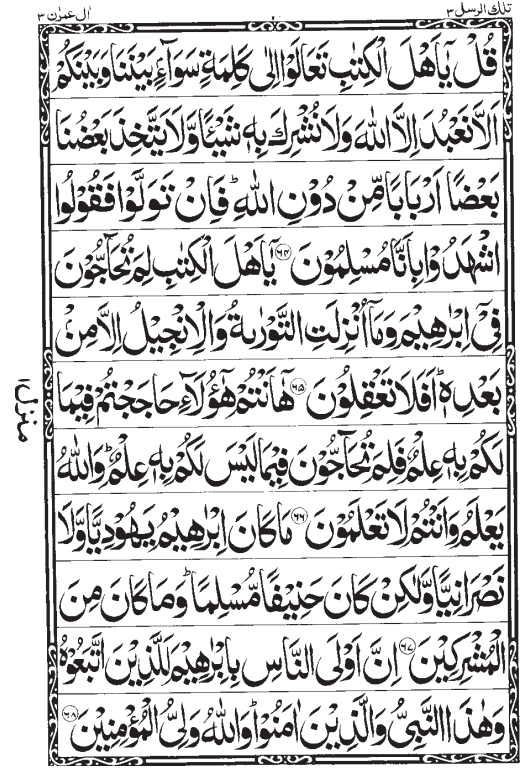 تلك الرسل ۳
ال عمرٰن ۳
قُلۡ يٰۤاَهۡلَ الۡكِتٰبِ تَعَالَوۡا اِلٰى كَلِمَةٍ سَوَآءٍۢ بَيۡنَنَا وَبَيۡنَكُمۡ
اَلَّا نَعۡبُدَ اِلَّا اللّٰهَ وَلَا نُشۡرِكَ بِهٖ شَيۡـًٔا وَّلَا يَتَّخِذَ بَعۡضُنَا
بَعۡضًا اَرۡبَابًا مِّنۡ دُوۡنِ اللّٰهِ‌ؕ فَاِنۡ تَوَلَّوۡا فَقُوۡلُوا
اشۡهَدُوۡا بِاَنَّا مُسۡلِمُوۡنَ ﴿۶۴﴾ يٰۤاَهۡلَ الۡكِتٰبِ لِمَ تُحَآجُّوۡنَ
فِىۡۤ اِبۡرٰهِيۡمَ وَمَاۤ اُنۡزِلَتِ التَّوۡرٰٮةُ وَالۡاِنۡجِيۡلُ اِلَّا مِنۡۢ
بَعۡدِهٖؕ اَفَلَا تَعۡقِلُوۡنَ ﴿۶۵﴾ هٰۤاَنۡتُمۡ هٰٓؤُلَآءِ حَاجَجۡتُمۡ فِيۡمَا
لَكُمۡ بِهٖ عِلۡمٌ فَلِمَ تُحَآجُّوۡنَ فِيۡمَا لَيۡسَ لَكُمۡ بِهٖ عِلۡمٌ‌ؕ وَاللّٰهُ
يَعۡلَمُ وَاَنۡتُمۡ لَا تَعۡلَمُوۡنَ ﴿۶۶﴾ مَا كَانَ اِبۡرٰهِيۡمُ يَهُوۡدِيًّا وَّلَا
نَصۡرَانِيًّا وَّلٰكِنۡ كَانَ حَنِيۡفًا مُّسۡلِمًا ؕ وَمَا كَانَ مِنَ
الۡمُشۡرِكِيۡنَ ﴿۶۷﴾ اِنَّ اَوۡلَى النَّاسِ بِاِبۡرٰهِيۡمَ لَلَّذِيۡنَ اتَّبَعُوۡهُ
وَهٰذَا النَّبِىُّ وَالَّذِيۡنَ اٰمَنُوۡا ؕ وَاللّٰهُ وَلِىُّ الۡمُؤۡمِنِيۡنَ ﴿۶۸﴾
منزل ۱